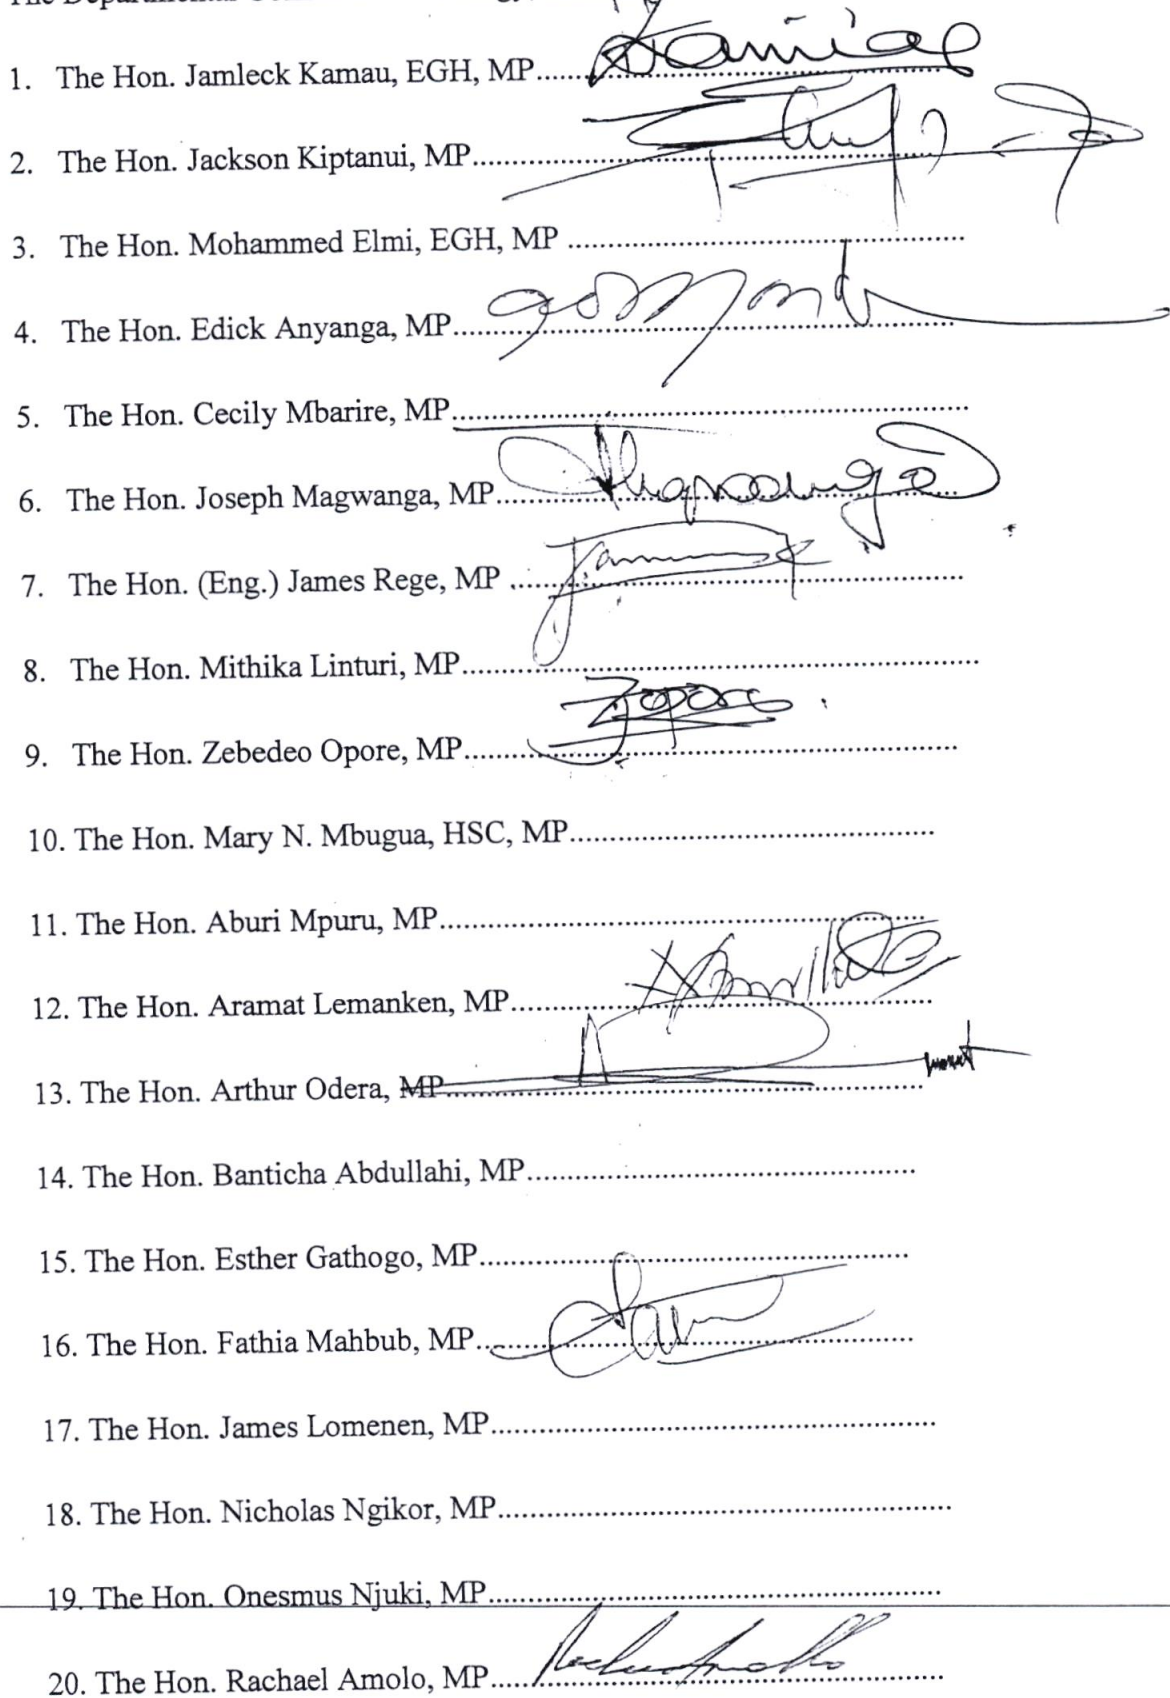 1. The Hon. Jamleck Kamau, EGH, MP
2. The Hon. Jackson Kiptanui, MP
3. The Hon. Mohammed Elmi, EGH, MP
4. The Hon. Edick Anyanga, MP
5. The Hon. Cecily Mbarire, MP
6. The Hon. Joseph Magwanga, MP
7. The Hon. (Eng.) James Rege, MP
8. The Hon. Mithika Linturi, MP
9. The Hon. Zebedeo Opore, MP
10. The Hon. Mary N. Mbugua, HSC, MP
11. The Hon. Aburi Mpuru, MP
12. The Hon. Aramat Lemanken, MP
13. The Hon. Arthur Odera, MP
14. The Hon. Banticha Abdullahi, MP
15. The Hon. Esther Gathogo, MP
16. The Hon. Fathia Mahbub, MP
17. The Hon. James Lomenen, MP
18. The Hon. Nicholas Ngikor, MP
19. The Hon. Onesmus Njuki, MP
20. The Hon. Rachael Amolo, MP